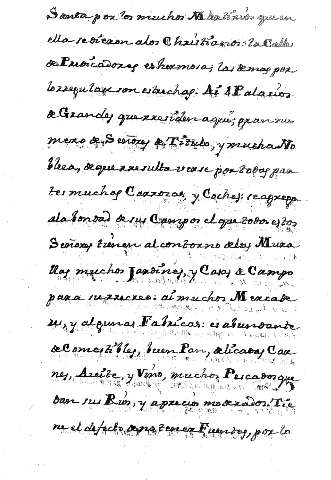 Santa por los muchos Martirios que en
ella se dieron alos Christianos: la Calle
de Predicadores es hermosa; las demas por
lo regular son estrechas. Ai 8 Palacios
de Grandes que rresiden aqui; gran nu
mero de Señores de Titulo, y mucha No
bleza, de que rresulta verse por todas par
tes muchas Carrozas, y Coches: se agrega
ala bondad de sus Campos el que todos estos
Señores tienen al contorno de las Mura
llas muchos Jardines, y Casas de Campo
para su rrecreo: ai muchos Mercade
res, y algunas Fabricas: es abundante
de Comestibles, buen Pan, delicadas Car
nes, Azeite, y Vino, muchos Pescados que
dan sus Rios, y aprecios moderados. Tie
ne el defecto de no tener Fuentes, por lo